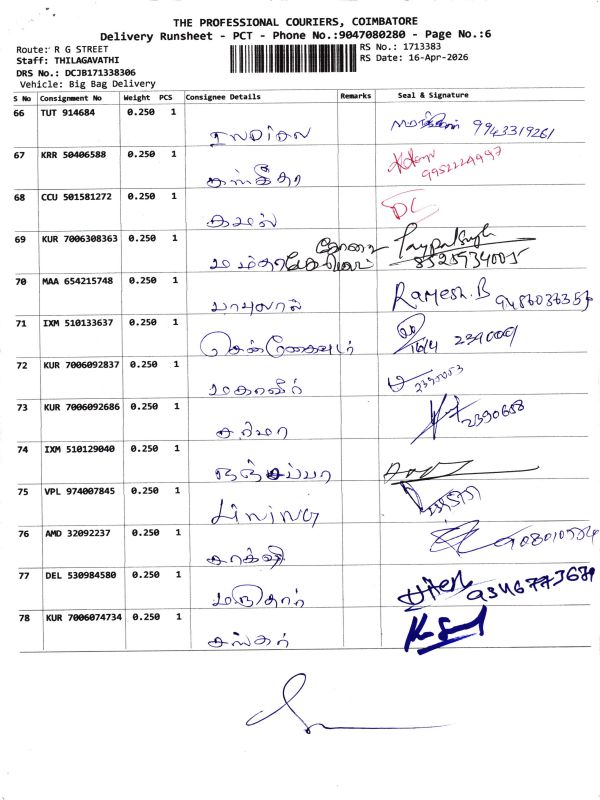 THE PROFESSIONAL COURIERS, COIMBATORE
Delivery Runsheet - PCT - Phone No.:9047080280 - Page No.:6
Route: R G STREET
RS No.: 1713383
Staff: THILAGAVATHI
RS Date: 16-Apr-2026
DRS No.: DCJB171338306
Vehicle: Big Bag Delivery
S No Consignment No Weight PCS Consignee Details Remarks Seal & Signature
66 TUT 914684 0.250 1 9943319261
67 KRR 50406588 0.250 1 9952224997
68 CCU 501581272 0.250 1 கமல் DC
69 KUR 7006308363 0.250 1
8525934005
70 MAA 654215748 0.250 1 பாபுலால் Ramesh.B
71 IXM 510133637 0.250 1 16/4
72 KUR 7006092837 0.250 1 மகாவீர் 2390053
73 KUR 7006092686 0.250 1 சர்மா 2390608
74 IXM 510129040 0.250 1 நஞ்சப்பா
75 VPL 974007845 0.250 1
76 AMD 32092237 0.250 1 சாக்ஷி
77 DEL 530984580 0.250 1
78 KUR 7006074734 0.250 1 சங்கர்